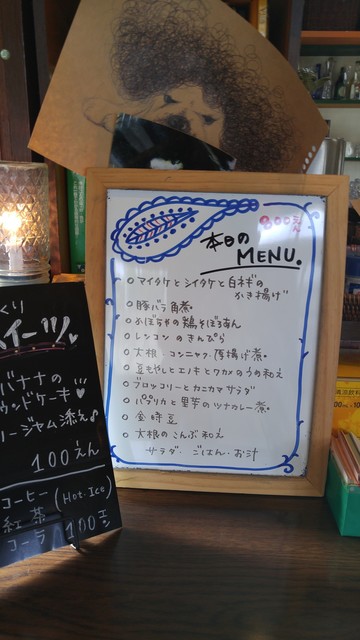 800えん
本日の
MENU.
○ マイタケとシイタケと白ネギの
かき揚げ
○ 豚バラ角煮
○ かぼちゃの鶏そぼろあん
○ レンコンのきんぴら
○ 大根 コンニャク 厚揚げ煮
○ 豆もやしとエノキとワカメのうめ和え
○ ブロッコリーとカニカマサラダ
○ パプリカと里芋のツナカレー煮
○ 金時豆
○ 大根のこんぶ和え
サラダ・ごはん・お汁
くり
イーツ
バナナの
ウンドケーキ
ージャム添え♪
100えん
コーヒー (Hot・Ice)
紅茶
コーラ 100エン